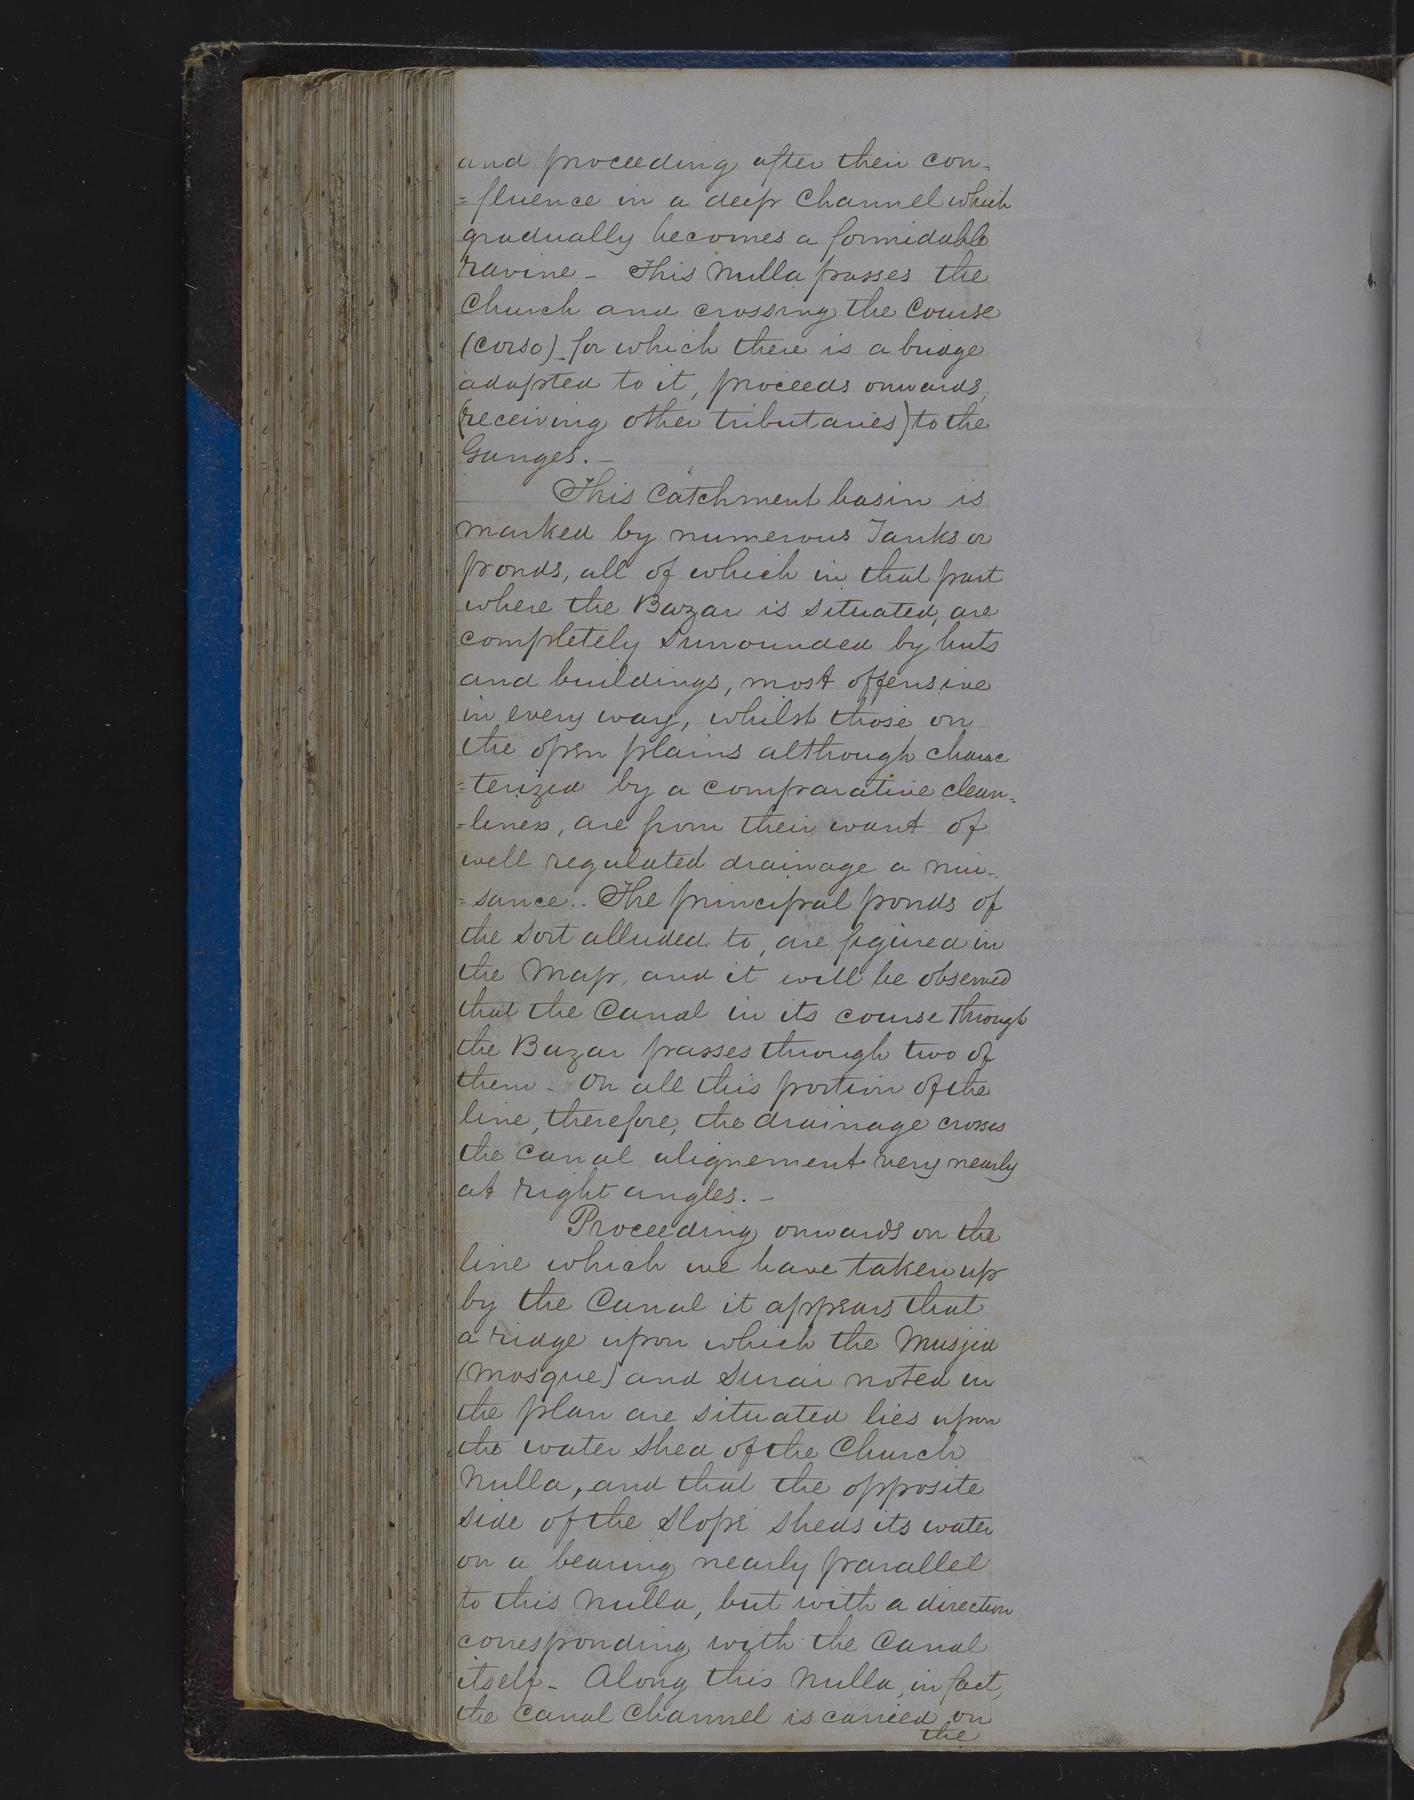 and proceeding after their con-
=fluence in a deep channel which
gradually becomes a formidable
ravine - This Nulla passes the
Church and crossing the Course
(corso) for which there is a bridge
adapted to it, proceeds onwards,
(receiving other tributaries) to the
Ganges. -
This Catchment basin is
marked by numerous Tanks or
ponds, all of which in that part
where the Bazar is situated, are
completely surrounded by huts
and buildings, most offensive
in every way, whilst those on
the open plains although charac
=terized by a comparative clean-
=liness, are from their want of
well regulated drainage a nui-
=sance.. The principal ponds of
the sort alluded to, are figured in
the Map, and it will be observed
that the Canal in its course through
the Bazar passes through two of
them - On all this portion of the
line, therefore, the drainage crosses
the canal alignement very nearly
at right angles. -
Proceeding onwards on the
line which we have taken up
by the Canal it appears that
a ridge upon which the Musjid
(Mosque) and Surai noted in
the plan are situated lies upon
the water shed of the Church
Nulla, and that the opposite
side of the slope sheds its water
on a bearing nearly parallel
to this Nulla, but with a direction
corresponding with the Canal
itself - Along this Nulla, in fact,
the Canal Channel is carried on
the